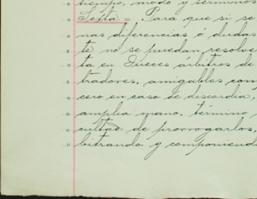 tiempo, modo y términos
Sexta = Para que si se
nas diferencias ó dudas
te no se puedan resolve
ta en Jueces árbitros de
tradores, amigables com
cero en caso de discordia,
amplia mano, término,
cultad de prorrogarlos,
bitrando y componiend